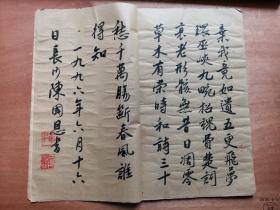 棄我竟如遺五更飛夢
環巫峽九畹招魂費楚詞
衰老形骸無昔日凋零
草木有榮時和詩三十
愁千萬腸斷春風誰
得知
一九九六年六月十六
日長沙陳國恩書